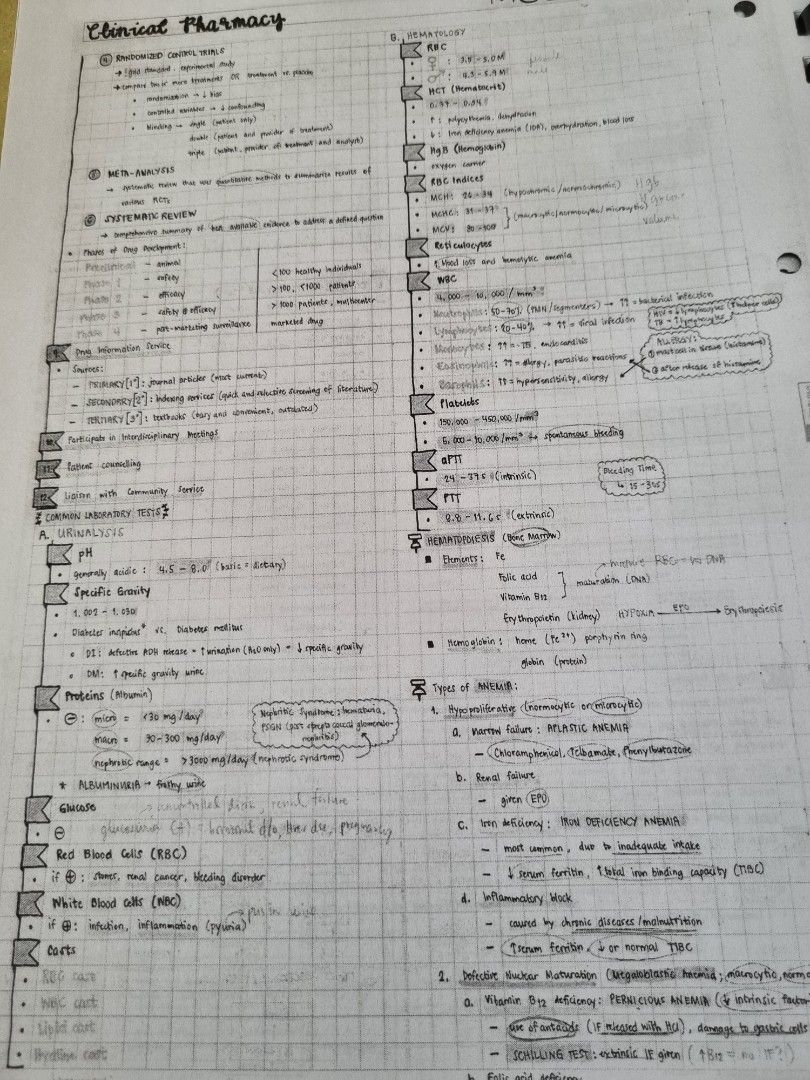 Clinical Pharmacy
④ RANDOMIZED CONTROL TRIALS
→ gold standard, experimental study
→ compare two or more treatments OR treatment vs. placebo
• randomization → ↓ bias
• controlled variables → ↓ confounding
• blinding → single (patient only)
double (patient and provider of treatment)
triple (patient, provider of treatment and analyst)
META-ANALYSIS
→ systematic review that uses quantitative methods to summarize results of
various RCTs
SYSTEMATIC REVIEW
→ comprehensive summary of best available evidence to address a defined question
• Phases of Drug Development:
Preclinical – animal
Phase 1 – safety <100 healthy individuals
Phase 2 – efficacy >100, <1000 patients
Phase 3 – safety & efficacy >1000 patients, multicenter
Phase 4 – post-marketing surveillance marketed drug
9. Drug Information Service
• Sources:
– PRIMARY [1°]: journal articles (most current)
– SECONDARY [2°]: indexing services (quick and selective screening of literature)
– TERTIARY [3°]: textbooks (easy and convenient, outdated)
10. Participate in Interdisciplinary Meetings
11. Patient counselling
12. Liaison with Community Service
COMMON LABORATORY TESTS
A. URINALYSIS
pH
• generally acidic: 4.5 – 8.0 (basic = dietary)
Specific Gravity
• 1.002 – 1.030
• Diabetes insipidus* vs. Diabetes mellitus
• DI: defective ADH release = ↑ urination (H₂O only) = ↓ specific gravity
• DM: ↑ specific gravity urine
Proteins (Albumin)
• ⊖: micro = <30 mg/day
macro = 30–300 mg/day
nephrotic range = >3000 mg/day (nephrotic syndrome)
Nephritic Syndrome: hematuria,
PSGN (post streptococcal glomerulo-
nephritis)
* ALBUMINURIA → frothy urine
Glucose
• ⊖ glucosuria (+) = hormonal d/o, liver dse, pregnancy
Red Blood Cells (RBC)
• if ⊕: stones, renal cancer, bleeding disorder
White Blood Cells (WBC)
• if ⊕: infection, inflammation (pyuria)
Casts
• RBC cast
• WBC cast
• Lipid cast
• Hyaline cast
B. HEMATOLOGY
RBC
• ♀: 3.5 – 5.0 M
• ♂: 4.3 – 5.9 M
HCT (Hematocrit)
• 0.39 – 0.54
• ↑: polycythemia, dehydration
• ↓: Iron deficiency anemia (IDA), overhydration, blood loss
HgB (Hemoglobin)
• oxygen carrier
RBC Indices
• MCH: 26 – 34 (hypochromic/normochromic) Hgb
• MCHC: 31 – 37
(macrocytic/normocytic/microcytic)
• MCV: 80 – 100 volume
Reticulocytes
• ↑ blood loss and hemolytic anemia
WBC
• 4,000 – 10,000 /mm³
• Neutrophils: 50–70% (PMN/segmenters) → ↑↑ = bacterial infection
• Lymphocytes: 20–40% → ↑↑ = viral infection
• Monocytes: ↑↑ = TB, endocarditis
• Eosinophils: ↑↑ = allergy, parasitic reactions
• Basophils: ↑↑ = hypersensitivity, allergy
HIV = ↓ lymphocytes (T helper cells)
TB = ↑ lymphocytes
ALLERGY:
① mast cell in tissue (histamine)
② after release of histamine
Platelets
• 150,000 – 450,000 /mm³
• 5,000 – 10,000/mm³ ↪ spontaneous bleeding
aPTT
• 24 – 37 s (intrinsic)
Bleeding Time
↳ 15 – 30s
PTT
• 8.8 – 11.6 s (extrinsic)
HEMATOPOIESIS (Bone Marrow)
Elements: Fe
Folic acid
maturation (DNA)
Vitamin B12
Erythropoietin (kidney) HYPOXIA — EPO → Erythropoiesis
mature RBC – no DNA
Hemoglobin: heme (Fe²⁺) porphyrin ring
globin (protein)
Types of ANEMIA:
1. Hypoproliferative (normocytic or microcytic)
a. marrow failure: APLASTIC ANEMIA
– Chloramphenicol, Felbamate, Phenylbutazone
b. Renal failure
– given EPO
c. Iron deficiency: IRON DEFICIENCY ANEMIA
– most common, due to inadequate intake
– ↓ serum ferritin, ↑ total iron binding capacity (TIBC)
d. Inflammatory block
– caused by chronic diseases/malnutrition
– ↑ serum ferritin, ↓ or normal TIBC
2. Defective Nuclear Maturation (Megaloblastic Anemia; macrocytic, normo
a. Vitamin B12 deficiency: PERNICIOUS ANEMIA (↓ intrinsic factor
– use of antacids (IF released with HCl), damage to gastric cells
– SCHILLING TEST: extrinsic IF given (↑B12 = no IF?!)
b. Folic acid deficiency